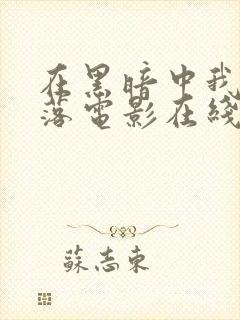 在黑暗中我
落電影在綫
蘇志東